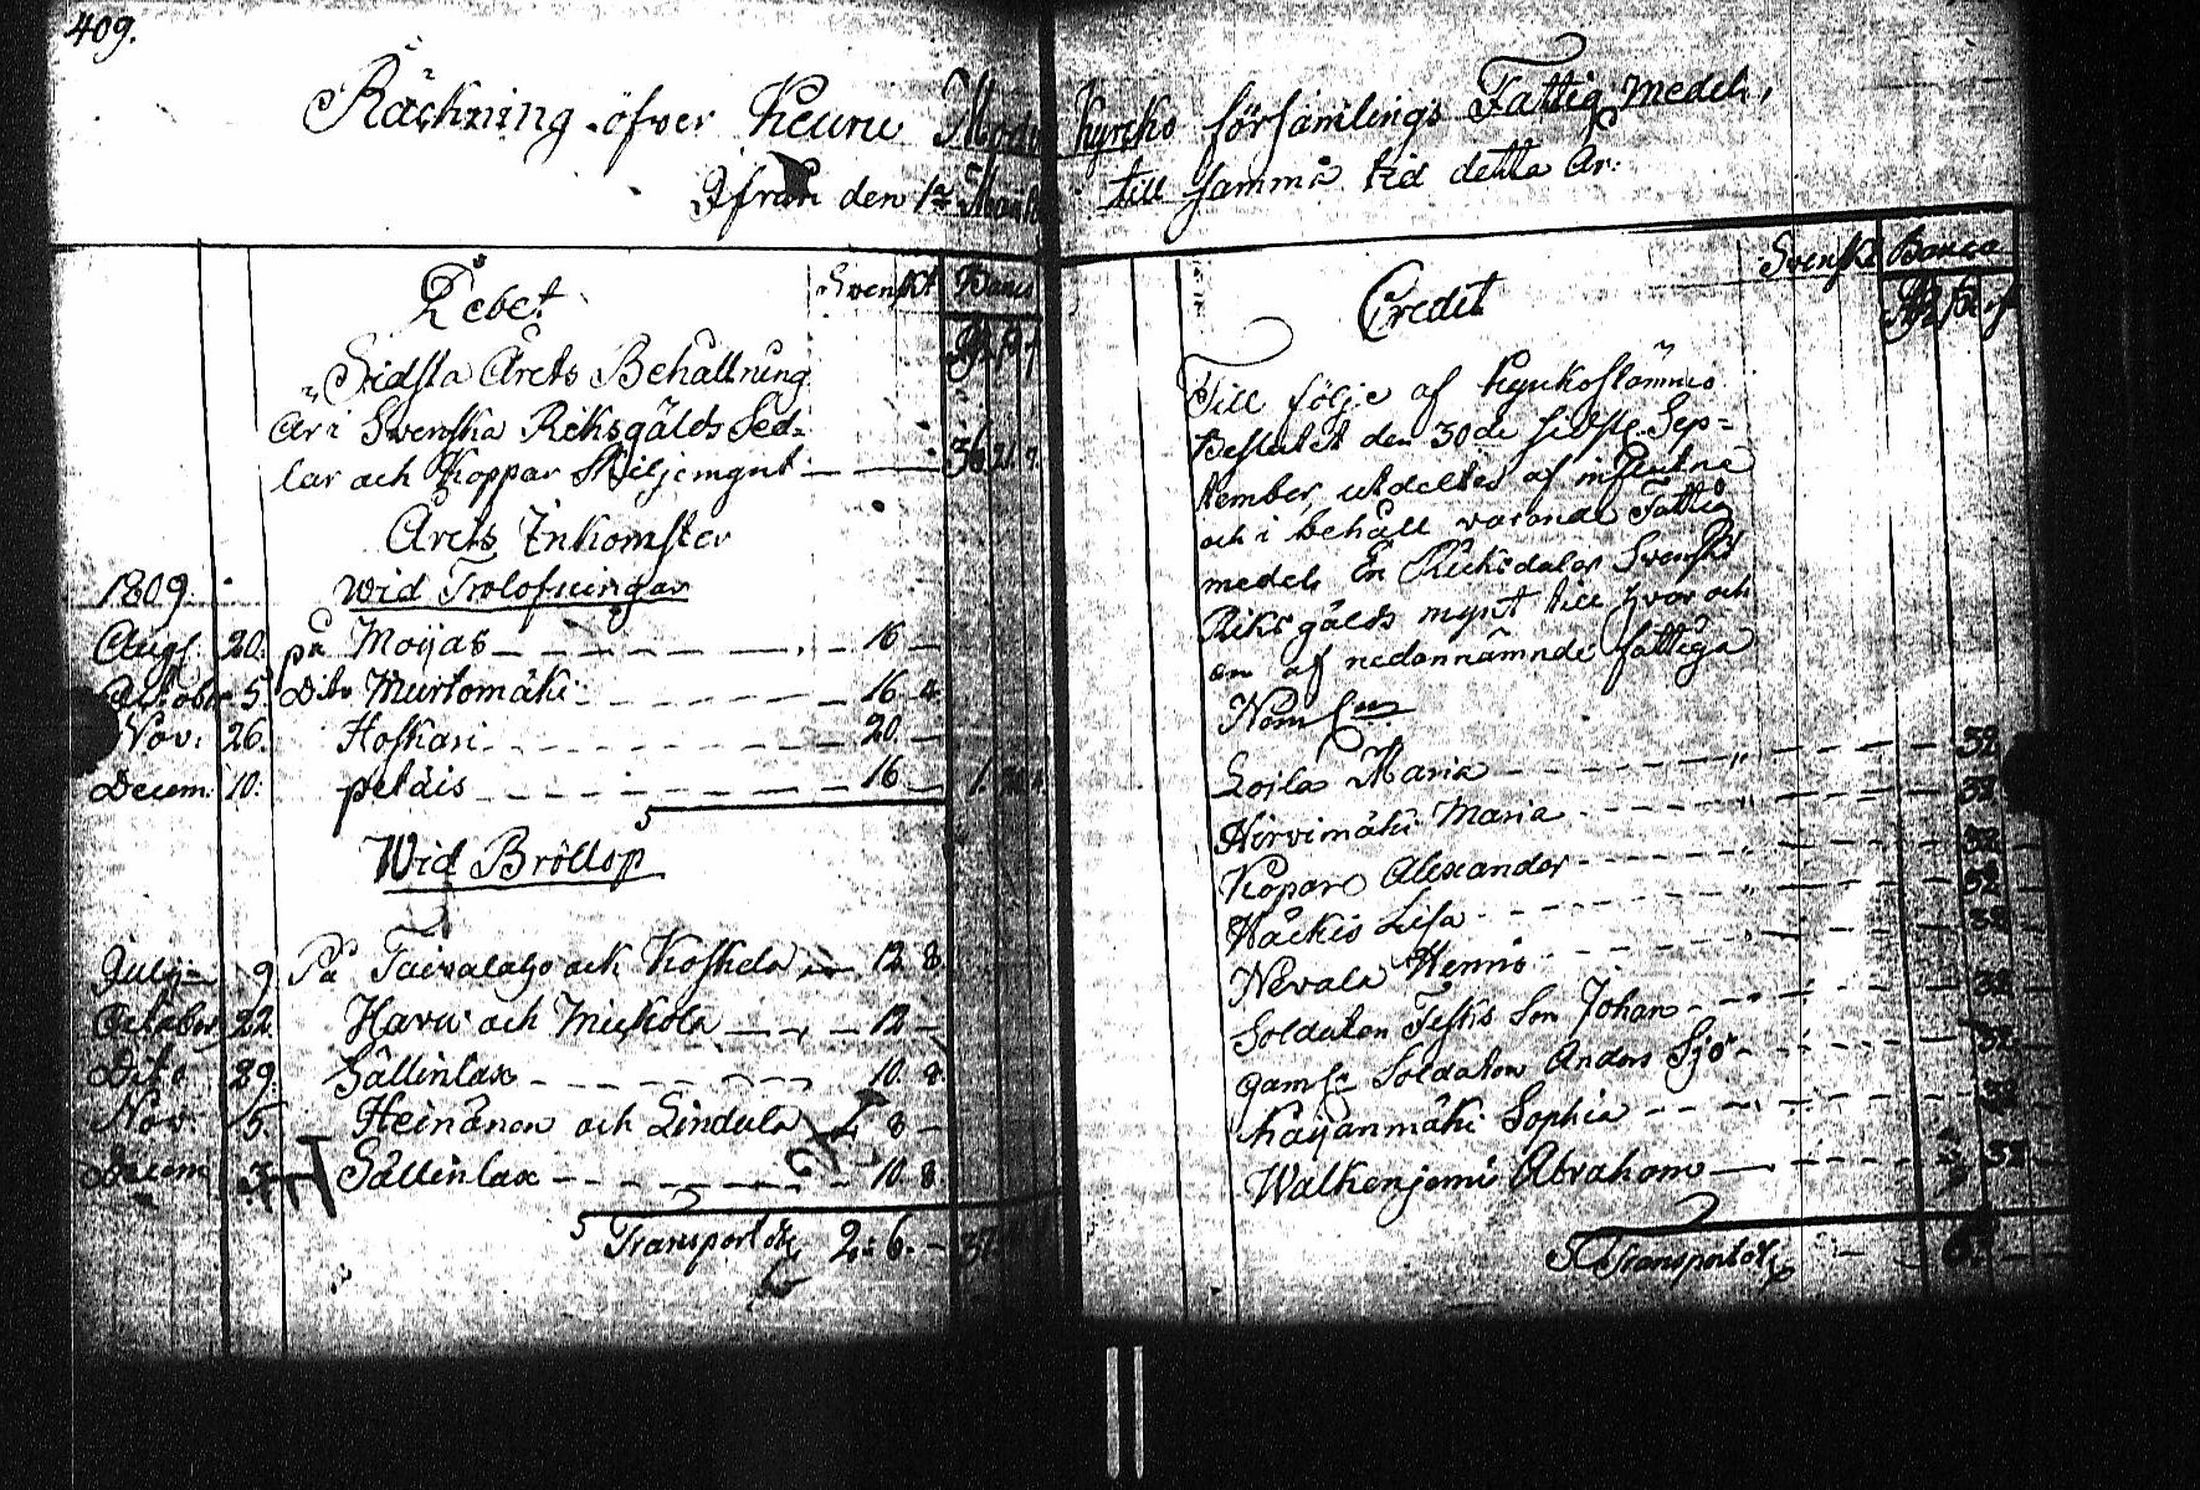 409.
Räckning öfver Keuru Moder Kyrcko församlings Fattig medel,
Ifrån den 1a Maii till samma tid detta År.
Debet
Svenskt Banco
Rd s r
Sidsta Årets Behållning
Är i Swenska Riksgälds Sed=
lar och Koppar Skiljemynt — 36 21. 7.
Årets Inkomster
1809. Wid Trolofningar
Augs. 20. på Moijas — 16 —
October 5. Dito Murtomäki — 16. 4.
Nov. 26. Hoskari — 20. —
Decem. 10. petäis — 16 — 1.
Wid Bröllop
Julij 9. På Taivalaho och Koskela — 12. 8.
October 22. Haru och Mickola — 12 —
Dito 29. Sällinlax — 10. 8.
Nov. 5. Heinänen och Lindula 8 —
Decem 3. Sällinlax — 10. 8
Transport 2: 6. — 37.
Credit
Svenskt Banco
Rd sk r
Till följe af Kyrkostämmo
Beslutet den 30de sidstl. Sep=
tember, utdeltes af influtne
och i behåll varande Fattig
medel En Riksdaler Svenskt
Riksgälds mynt till hvar och
en af nedannämnde fattiga
Neml.
Loila Maria — 32
Hirvimäki Maria — 32
Kopare Alexander — 32
Häckis Lisa — 32
Nevala Henric — 32
Soldaten Fisks Son Johan — 32
gaml. Soldaten Anders Sjö — 32
Kaijanmäki Sophia — 32
Walkenjemi Abraham — 32
Transport — 6. —